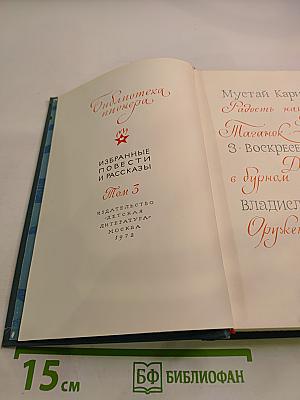 Библиотека
пионера
ИЗБРАННЫЕ
ПОВЕСТИ
И РАССКАЗЫ
Том 3
ИЗДАТЕЛЬСТВО
«ДЕТСКАЯ
ЛИТЕРАТУРА»
МОСКВА
1972
Мустай Кари
Радость на
Таганок
З. Воскресе
в бурном
Владисл
Оруже
15 см
БФ БИБЛИОФАН